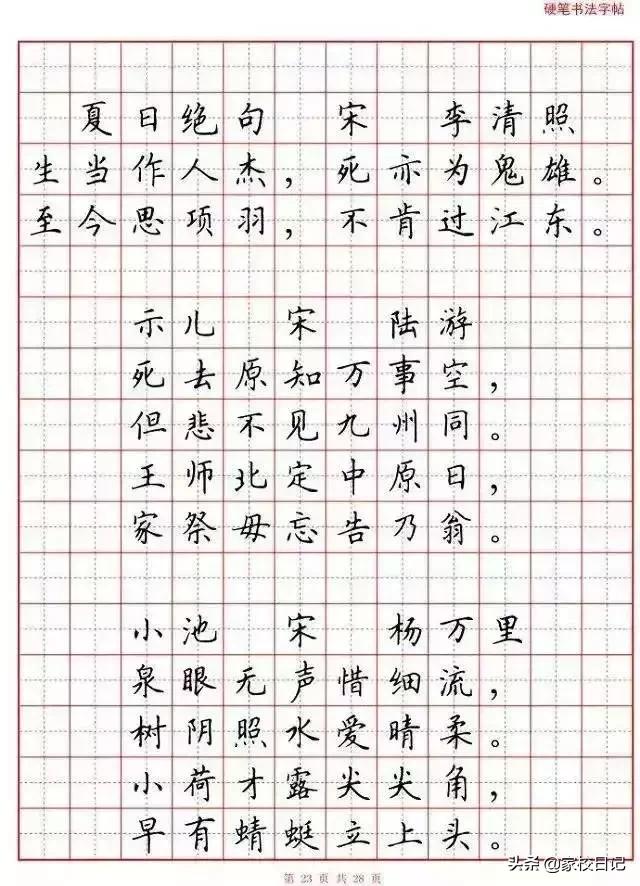 硬笔书法字帖
夏日绝句 宋 李清照
生当作人杰，死亦为鬼雄。
至今思项羽，不肯过江东。
示儿 宋 陆游
死去原知万事空，
但悲不见九州同。
王师北定中原日，
家祭毋忘告乃翁。
小池 宋 杨万里
泉眼无声惜细流，
树阴照水爱晴柔。
小荷才露尖尖角，
早有蜻蜓立上头。
头条 @家校日记
第 23 页 共 28 页